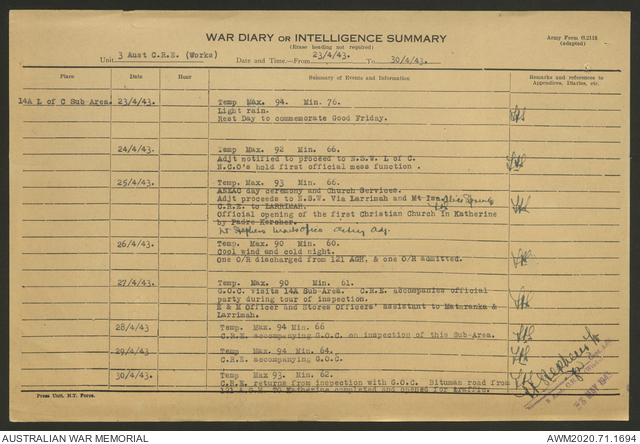 WAR DIARY OR INTELLIGENCE SUMMARY
Army Form C.2118
(adapted)
(Erase heading not required)
Unit 3 Aust C.R.E. (Works) Date and Time.—From 23/4/43. To 30/4/43.
Place Date Hour Summary of Events and Information Remarks and references to
Appendices, Diaries, etc.
14A L of C Sub Area. 23/4/43. Temp Max. 94. Min. 76.
Light rain.
Rest Day to commemorate Good Friday.
24/4/43. Temp. Max. 92 Min. 66.
Adjt notified to proceed to N.S.W. L of C.
N.C.O's hold first official mess function.
25/4/43. Temp. Max. 93 Min. 66.
ANZAC day ceremony and Church Services.
Adjt proceeds to N.S.W. Via Larrimah and Mt Isa Alice Springs
C.R.E. to LARRIMAH.
Official opening of the first Christian Church in Katherine
by Padre Kercher.
Lt Stephens Works Office acting Adj.
26/4/43. Temp. Max. 90 Min. 60.
Cool wind and cold night.
One O/R discharged from 121 AGH, & one O/R admitted.
27/4/43. Temp. Max. 90 Min. 61.
G.O.C. visits 14A Sub-Area. C.R.E. accompanies official
party during tour of inspection.
E & M Officer and Stores Officers' assistant to Mataranka &
Larrimah.
28/4/43 Temp. Max. 94 Min. 66
C.R.E. accompanying G.O.C. on inspection of this Sub-Area.
29/4/43 Temp. Max. 94 Min. 64.
C.R.E. accompanying G.O.C.
30/4/43 Temp. Max 93. Min. 62.
C.R.E. returns from inspection with G.O.C. Bituman road from
121 A.G.H. to Katherine completed and opened for traffic.
Stephens Lt
MAY 1943
Press Unit, N.T. Force.
AUSTRALIAN WAR MEMORIAL
AWM2020.71.1694